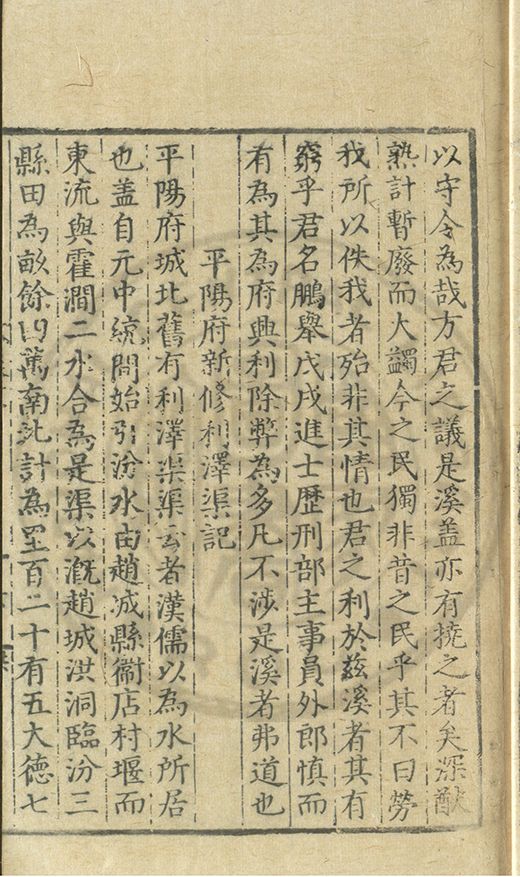 以守令為哉方君之議是溪盖亦有撓之者矣深猷
熟計暫廢而大蠲今之民獨非昔之民乎其不曰勞
我所以佚我者殆非其情也君之利於兹溪者其有
窮乎君名鵬舉戊戌進士歴刑部主事員外郎慎而
有為其為府興利除弊為多凡不涉是溪者弗道也
平陽府新修利澤渠記
平陽府城北舊有利澤渠渠云者漢儒以為水所居
也盖自元中統間始引汾水由趙城縣衞店村堰而
東流與霍澗二水合為是渠以溉趙城洪洞臨汾三
縣田為畝餘四萬南北計為里百二十有五大徳七